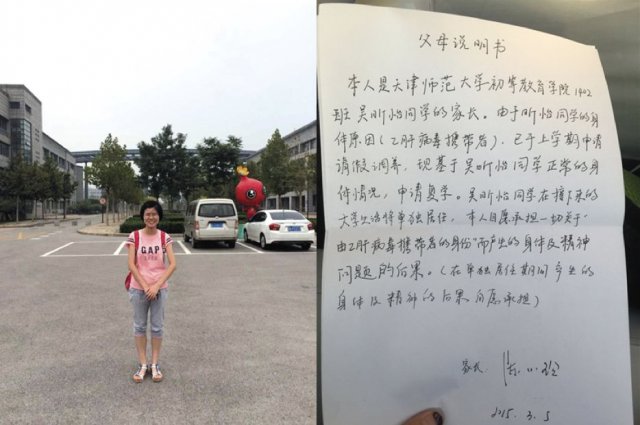 GAP
父母说明书
本人是天津师范大学初等教育学院1402
班吴昕怡同学的家长。由于昕怡同学的身
体原因(乙肝病毒携带者),已于上学期申请
请假调养,现基于吴昕怡同学正常的身
体情况,申请复学。吴昕怡同学在接下来的
大学生活将单独居住,本人自愿承担一切关于
“由乙肝病毒携带者的身份”而产生的身体及精神
问题的后果。(在单独居住期间产生的
身体及精神的后果自愿承担)
家长:
2015.3.5